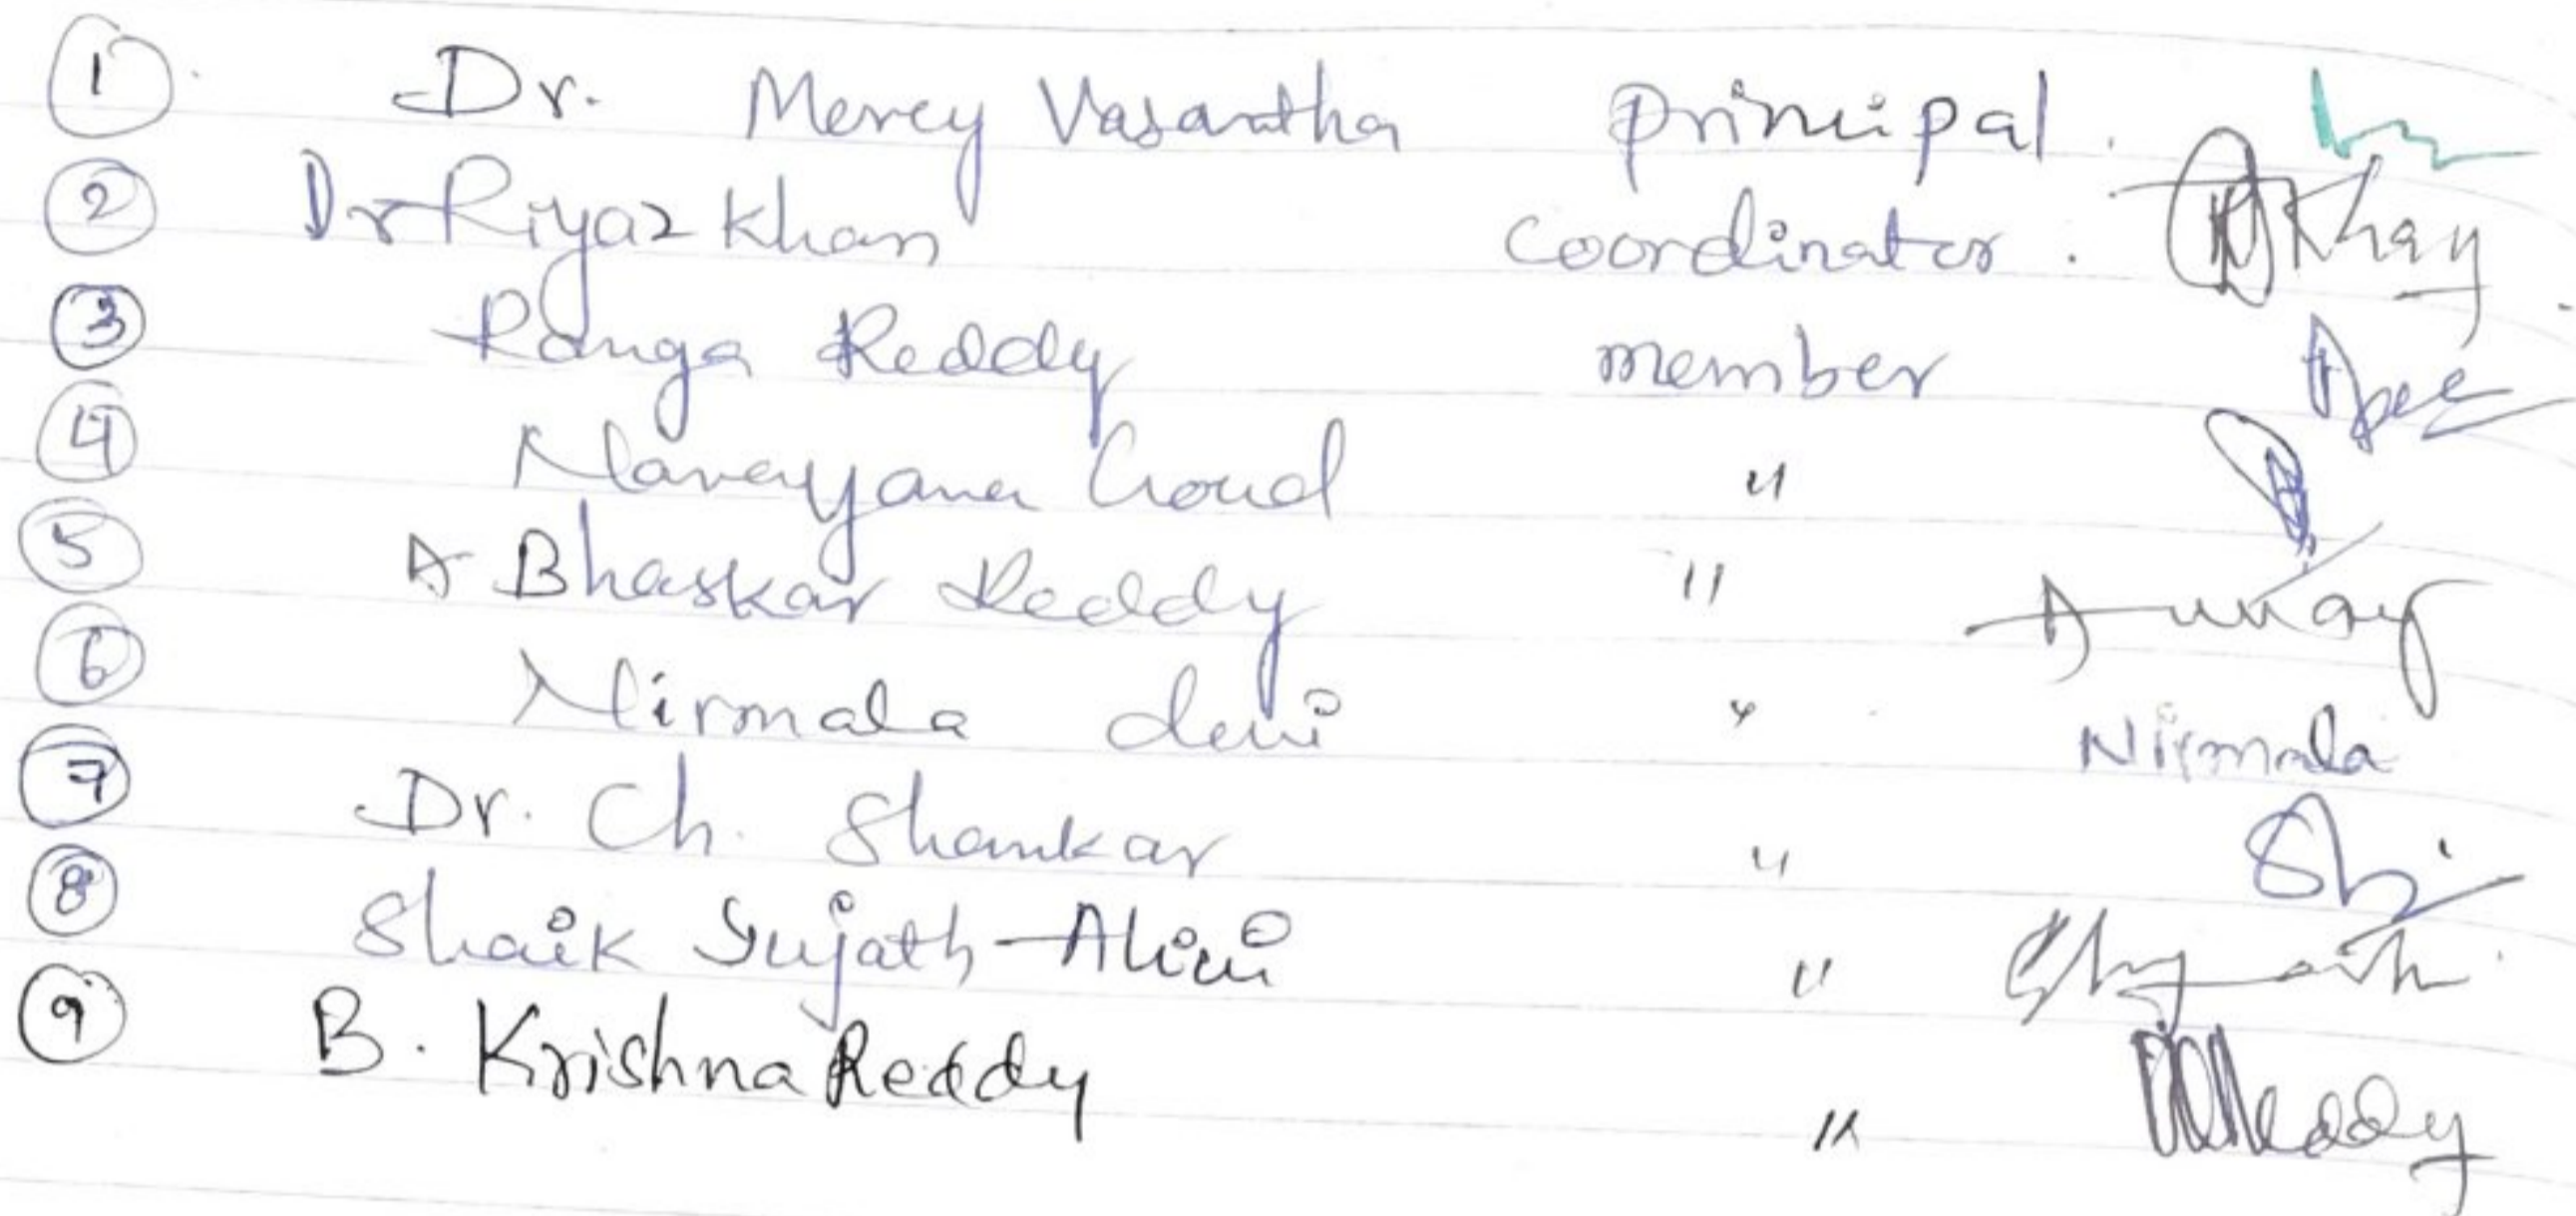 ① Dr. Mercy Vasantha Principal.
② Dr Riyaz Khan Coordinator. Khan
③ Ranga Reddy member
④ Narayana Goud "
⑤ A Bhaskar Reddy "
⑥ Nirmala devi " Nirmala
⑦ Dr. Ch. Shankar "
⑧ Shaik Sujath Ali "
⑨ B. Krishna Reddy " Reddy